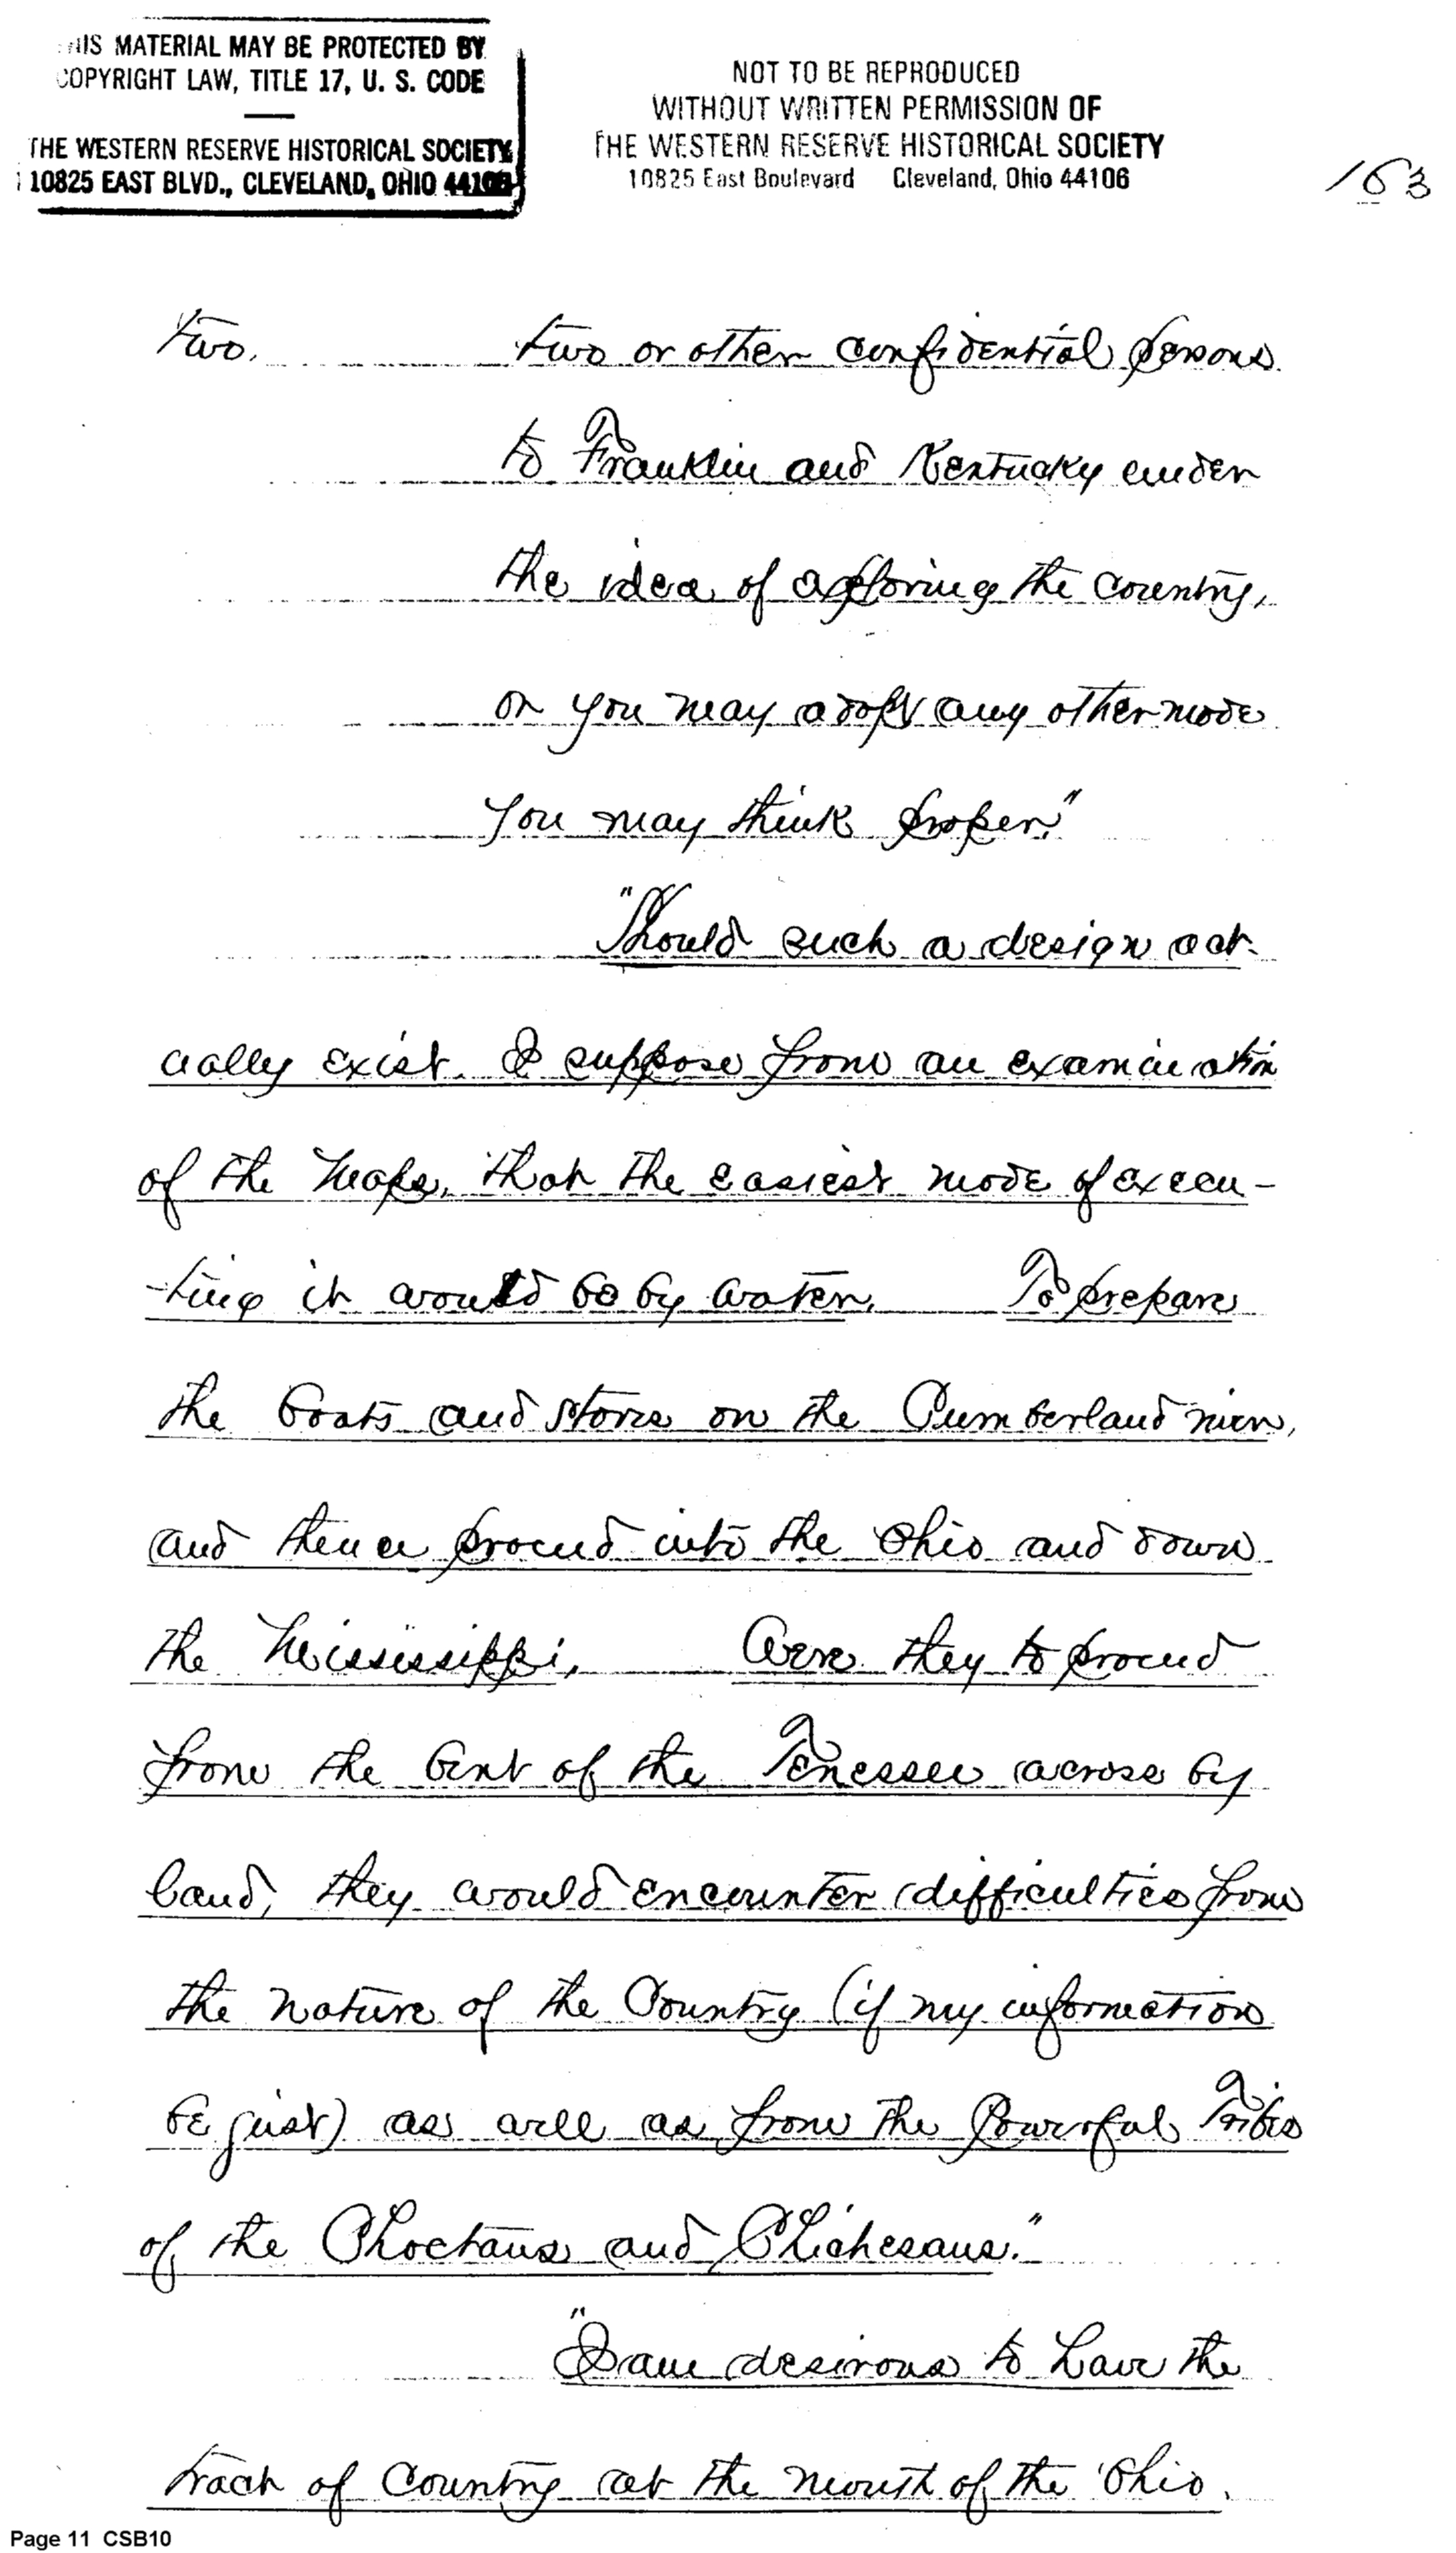 THIS MATERIAL MAY BE PROTECTED BY
COPYRIGHT LAW, TITLE 17, U. S. CODE
THE WESTERN RESERVE HISTORICAL SOCIETY
10825 EAST BLVD., CLEVELAND, OHIO 44106
NOT TO BE REPRODUCED
WITHOUT WRITTEN PERMISSION OF
THE WESTERN RESERVE HISTORICAL SOCIETY
10825 East Boulevard Cleveland, Ohio 44106
163
two. two or other confidential persons
to Franklin and Kentucky under
the idea of exploring the country,
or you may adopt any other mode
you may think proper."
"Should such a design act-
ually exist. I suppose from an examination
of the Maps, that the easiest mode of execu-
-ting it would be by water. To prepare
the boats and stores on the Cumberland river,
and thence proceed into the Ohio and down
the Mississippi. Were they to proceed
from the bent of the Tenessee across by
land, they would encounter difficulties from
the nature of the Country (if my information
be just) as well as from the Powerful Tribes
of the Choctaws and Chickesaws."
"I am desirous to have the
tract of Country at the mouth of the Ohio.
Page 11 CSB10